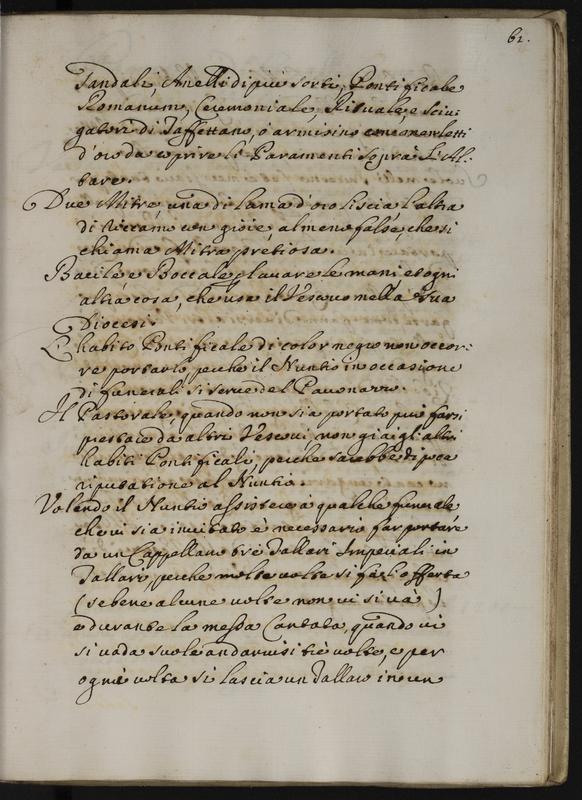 62.
Sandali, Anelli di più sorti, Pontificale
Romanum, Ceremoniale, Rituale, e sciu-
gatori di Taffettano, ò armisino con merletti
d'oro da coprire li Paramenti sopra L'Al-
tare.
Due Mitre, una di lama d'oro liscia l'altra
di riccamo con gioie, almeno false, che si
chiama Mitra pretiosa.
Bacile e Boccale p lavare le mani et ogni
altra cosa, che usa il Vescovo nella sua
Diocesi.
L'habito Pontificale di color negro non occor-
re portarlo, perche il Nuntio in occasione
di funerali si serve del Pavonazzo.
Il Pastorale, quando non sia portato può farsi
prestare da altri Vescovi, non già gli altri
habiti Pontificali, perche sarebbe di poca
riputatione al Nuntio.
Volendo il Nuntio assistere à qualche funerale
che vi sia invitato è necessario far portare
da un Cappellano trè Tallari Imperiali in
Tallari, perche molte volte si fà l'offerta
(se bene alcune volte non vi si và)
e durante la messa Cantata, quando vi
si vada suole andarvisi trè volte, e per
ogni volta si lascia un Tallaro in un